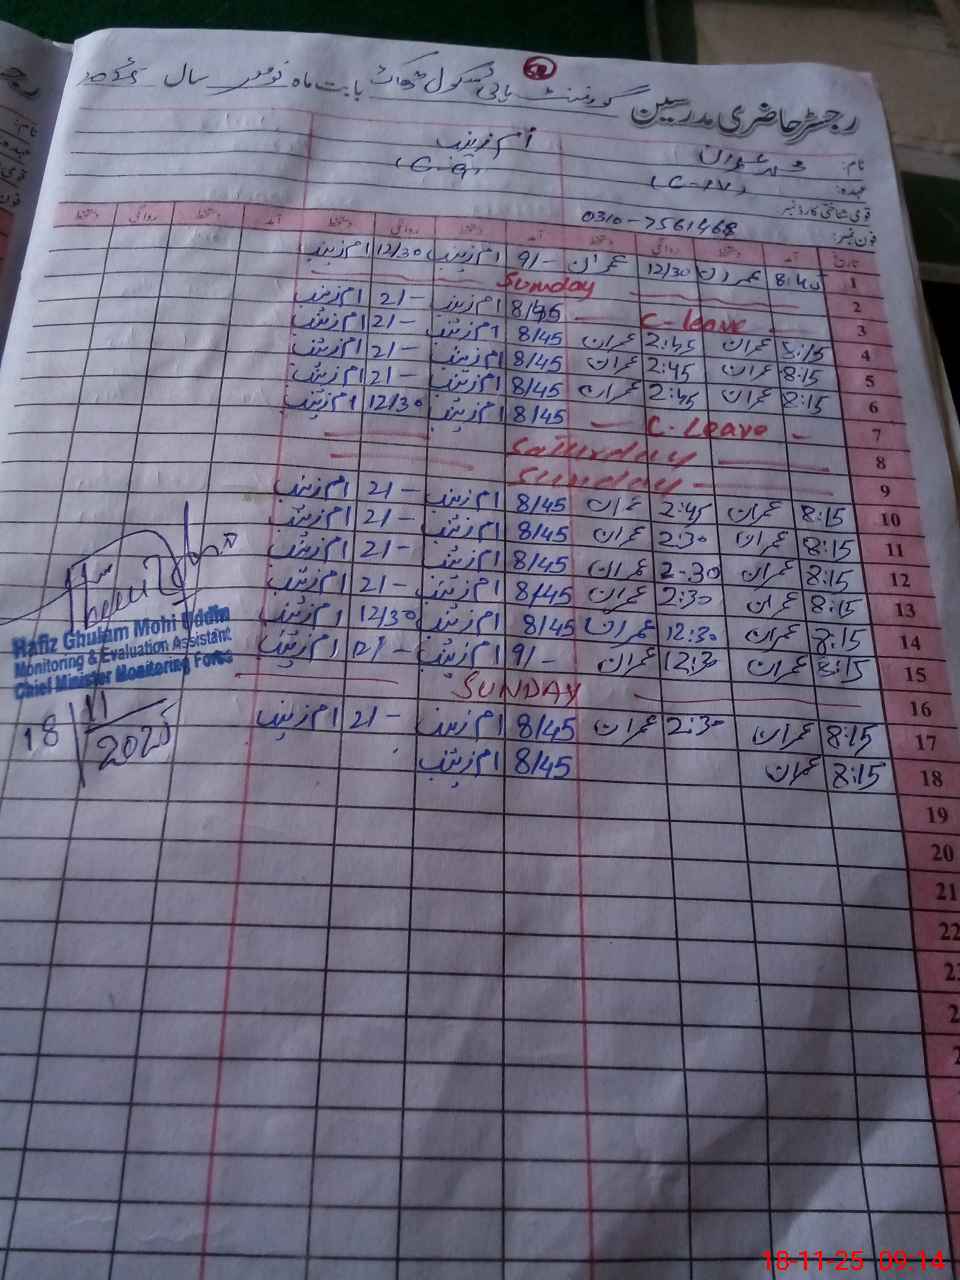 رجسٹر حاضری مدرسین گورنمنٹ ہائی سکول بابت ماہ نومبر سال 2025
نام: عمران ام زینب
عہدہ:
قومی شناختی کارڈ نمبر:
فون نمبر: 0310-7561468
تاریخ آمد دستخط روانگی دستخط آمد دستخط روانگی دستخط آمد دستخط روانگی دستخط
1 8:40 عمران 12/30 عمران 9/- ام زینب 12/30 ام زینب
2 Sunday
3 C-leave 8/45 ام زینب 2/- ام زینب
4 8:15 عمران 2:45 عمران 8/45 ام زینب 2/- ام زینب
5 8:15 عمران 2:45 عمران 8/45 ام زینب 2/- ام زینب
6 8:15 عمران 2:45 عمران 8/45 ام زینب 2/- ام زینب
7 C-Leave 8/45 ام زینب 12/30 ام زینب
8 Saturday
9 Sunday
10 8:15 عمران 2:45 عمران 8/45 ام زینب 2/- ام زینب
11 8:15 عمران 2:30 عمران 8/45 ام زینب 2/- ام زینب
12 8:15 عمران 2-30 عمران 8/45 ام زینب 2/- ام زینب
13 8:15 عمران 2:30 عمران 8/45 ام زینب 2/- ام زینب
14 8:15 عمران 12:30 عمران 8/45 ام زینب 12/30 ام زینب
15 8:15 عمران 12:30 عمران 9/- ام زینب 12/- ام زینب
16 SUNDAY
17 8:15 عمران 2:30 عمران 8/45 ام زینب 2/- ام زینب
18 8:15 عمران 8/45 ام زینب
19
20
21
22
Hafiz Ghulam Mohi Uddin
Monitoring & Evaluation Assistant
Chief Minister Monitoring Force
18/11/2025
18-11-25 09:14